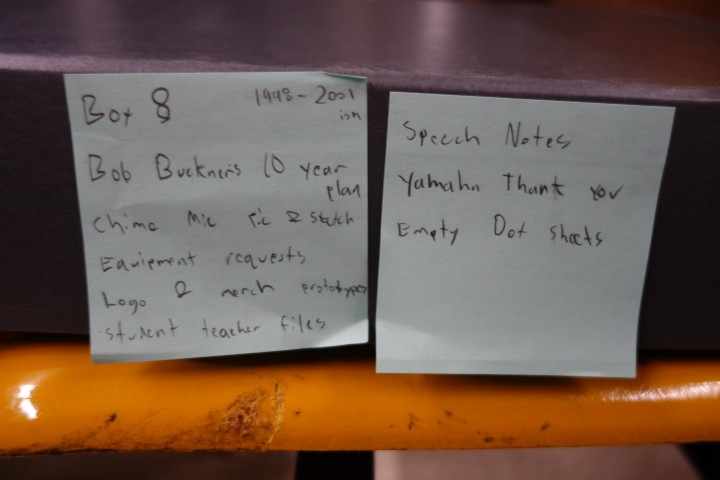 Box 8
1998-2001
ish
Bob Buckner's 10 year
plan
Chime Mic Pic & sketch
Equipment requests
Logo & merch prototypes
student teacher files
Speech Notes
Yamaha Thank you
Empty Dot sheets